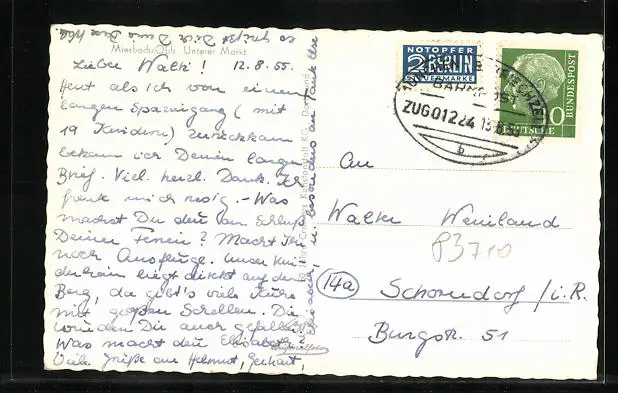 es grüßt Dich Deine
Miesbach/Obb Unterer Markt
Lieber Walti! 12.8.55.
Heut als ich von einem
langen Spaziergang (mit
19 Kindern) zurückkam
bekam ich Deinen langen
Brief. Viel herzl. Dank. Ich
freute mich riesig. - Was
machst Du denn am Schluß
Deiner Ferien? Macht Ihr
noch Ausflüge. Unser Kin-
derheim liegt direkt auf dem
Berg, da gibt's viele Kühe
mit großen Schellen. Die
würden Dir auch gefallen.
Was macht denn Elisabeth?
Viele Grüße an Helmut, Gerhart,
u. besonders an Tante Else
NOTOPFER
2 BERLIN
STEUERMARKE
BAHNPOST
ZUG 01224
b
10
DEUTSCHE
BUNDESPOST
An
Walter Weinland
83710
(14a) Schorndorf/i.R.
Burgstr. 51